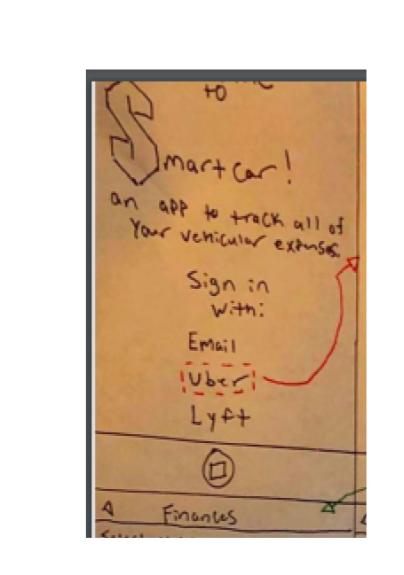 to
Smartcar!
an app to track all of
your vehicular expenses.
Sign in
with:
Email
Uber
Lyft
Finances